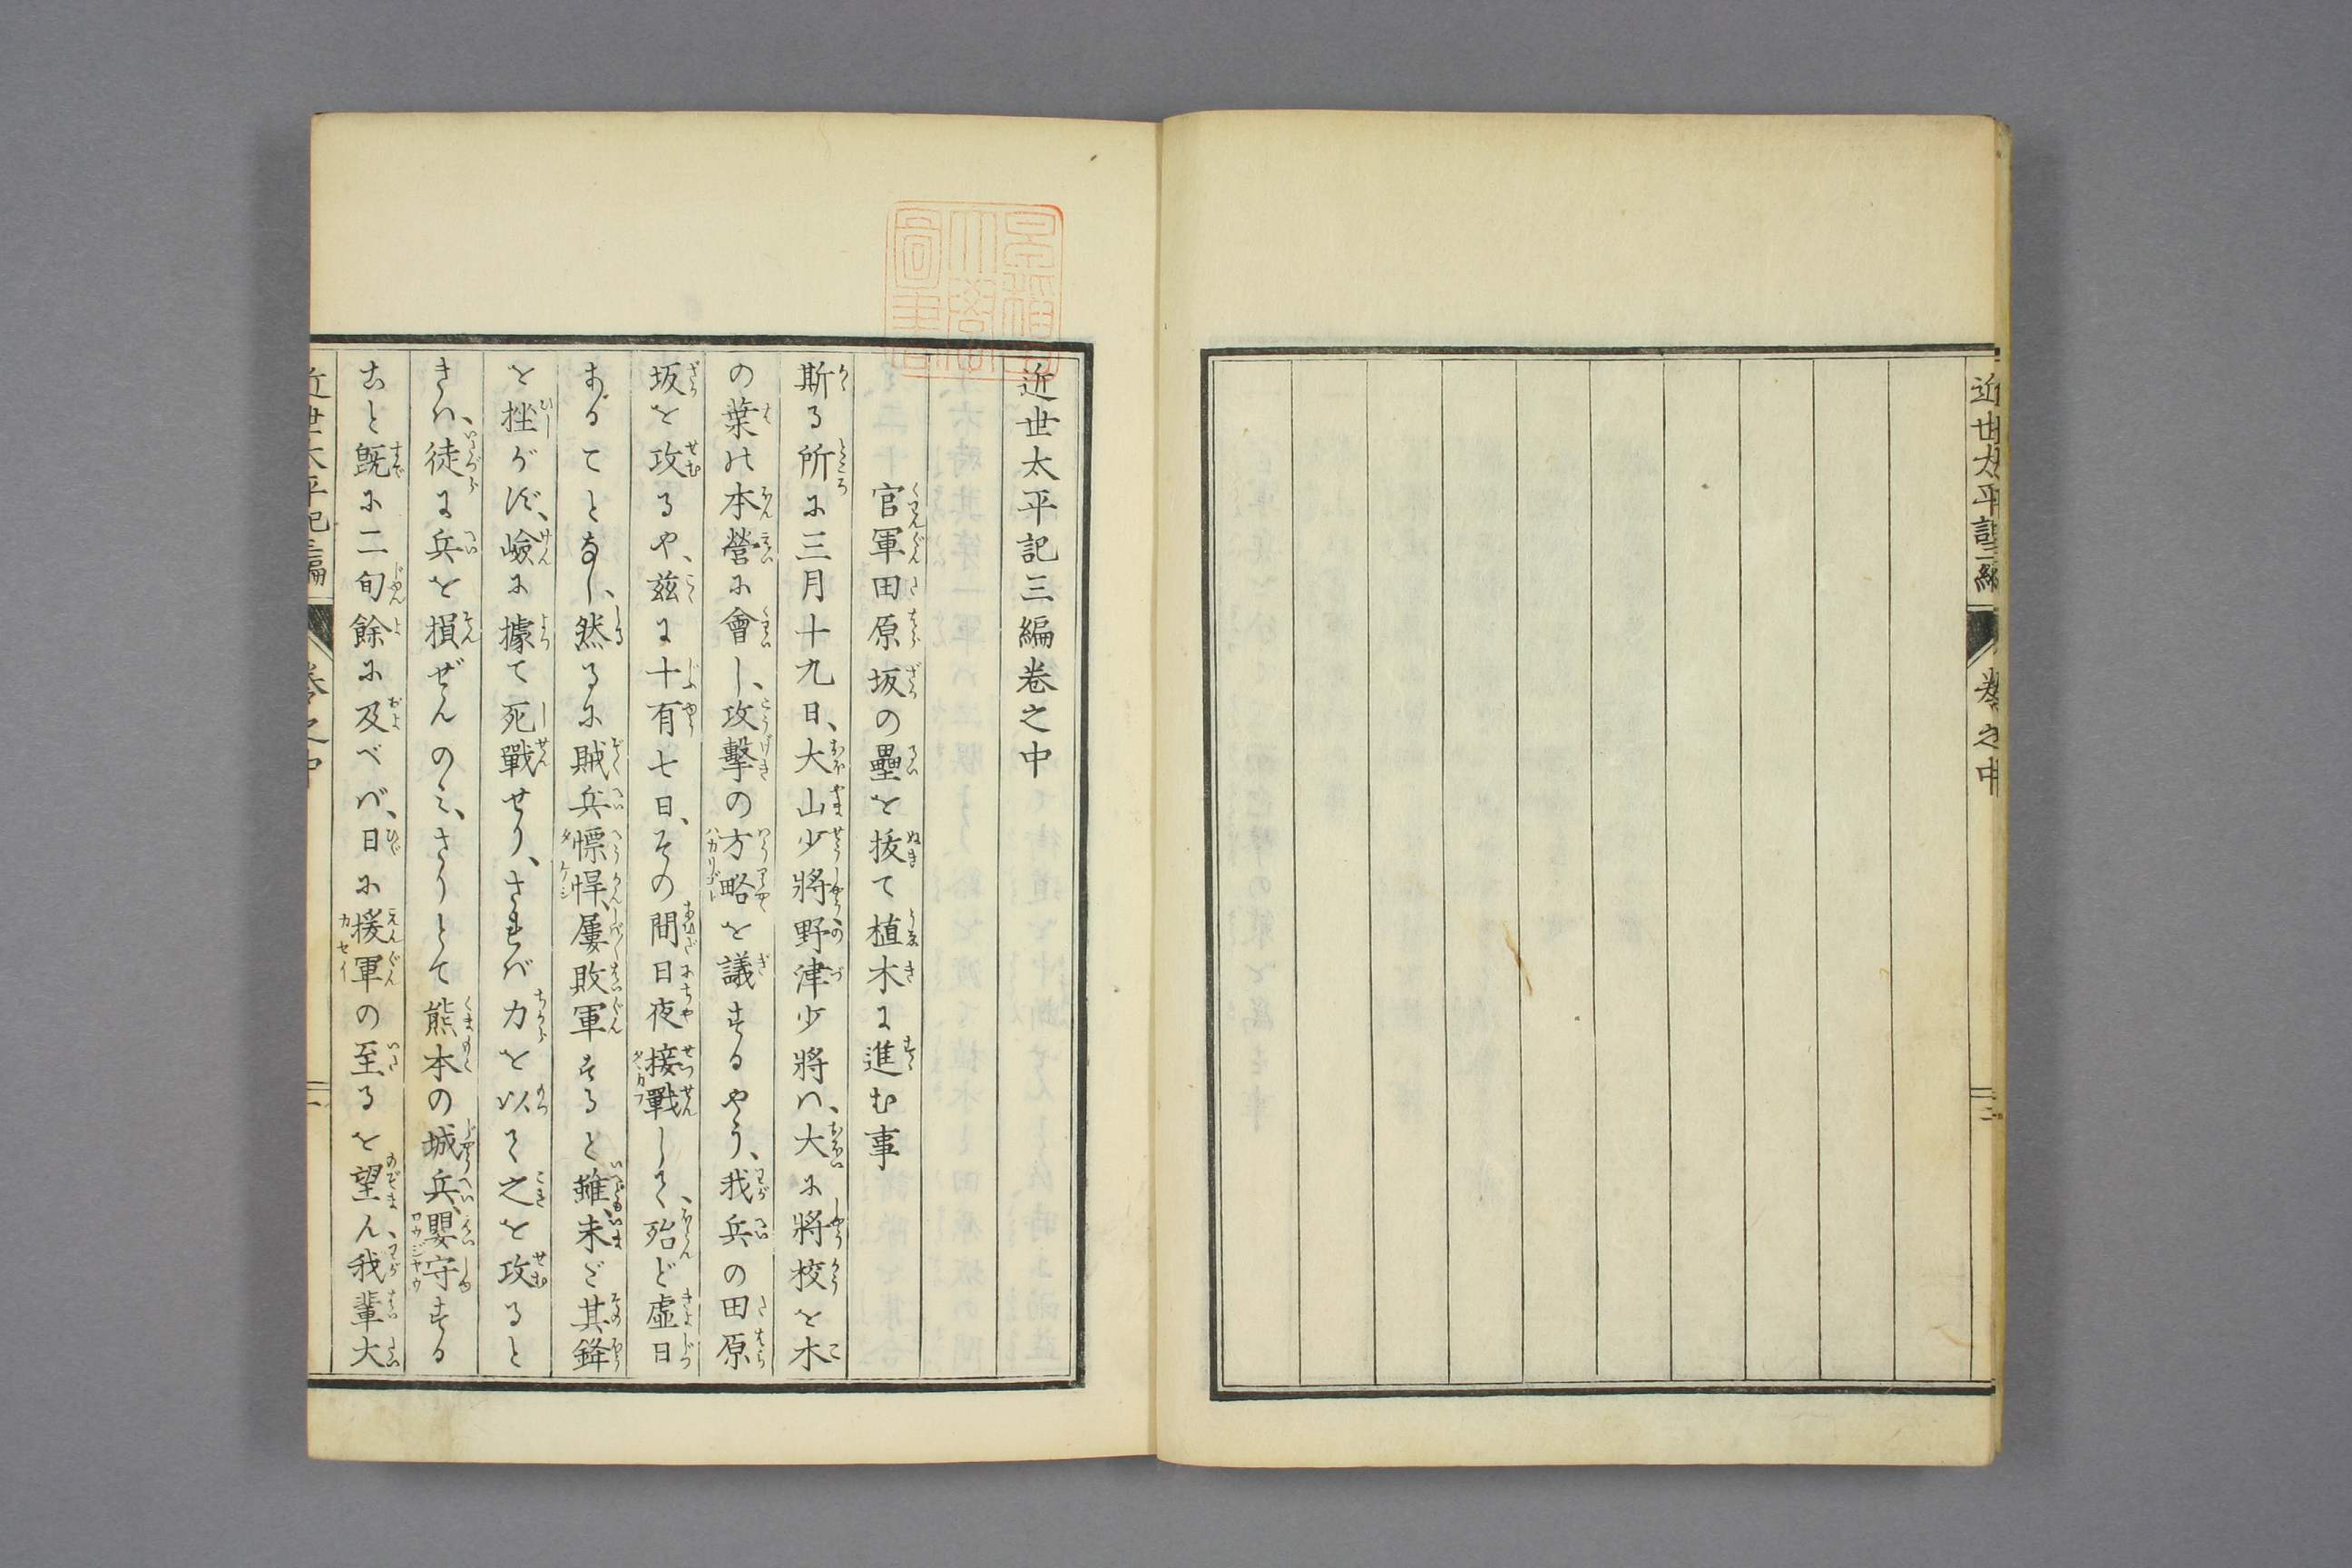 近世太平記三編
卷之中
二
近世太平記三編卷之中
官軍田原坂の壘を抜て植木に進む事
斯る所に三月十九日、大山少將、野津少將ハ、大に將校を木
の葉の本營に會し、攻擊の方略を議するやう、我兵の田原
坂を攻るや、茲に十有七日、その間日夜接戰して、殆ど虛日
あることなし、然るに賊兵慓悍、屢敗軍すると雖、未ど其鋒
を挫がず、嶮に據て死戰せり、されバ力を以て之を攻ると
きハ、徒に兵を損ぜんのミ、さりとて熊本の城兵、嬰守する
こと既に二旬餘に及べバ、日に援軍の至るを望ん、我輩大
近世太平記三編
卷之中